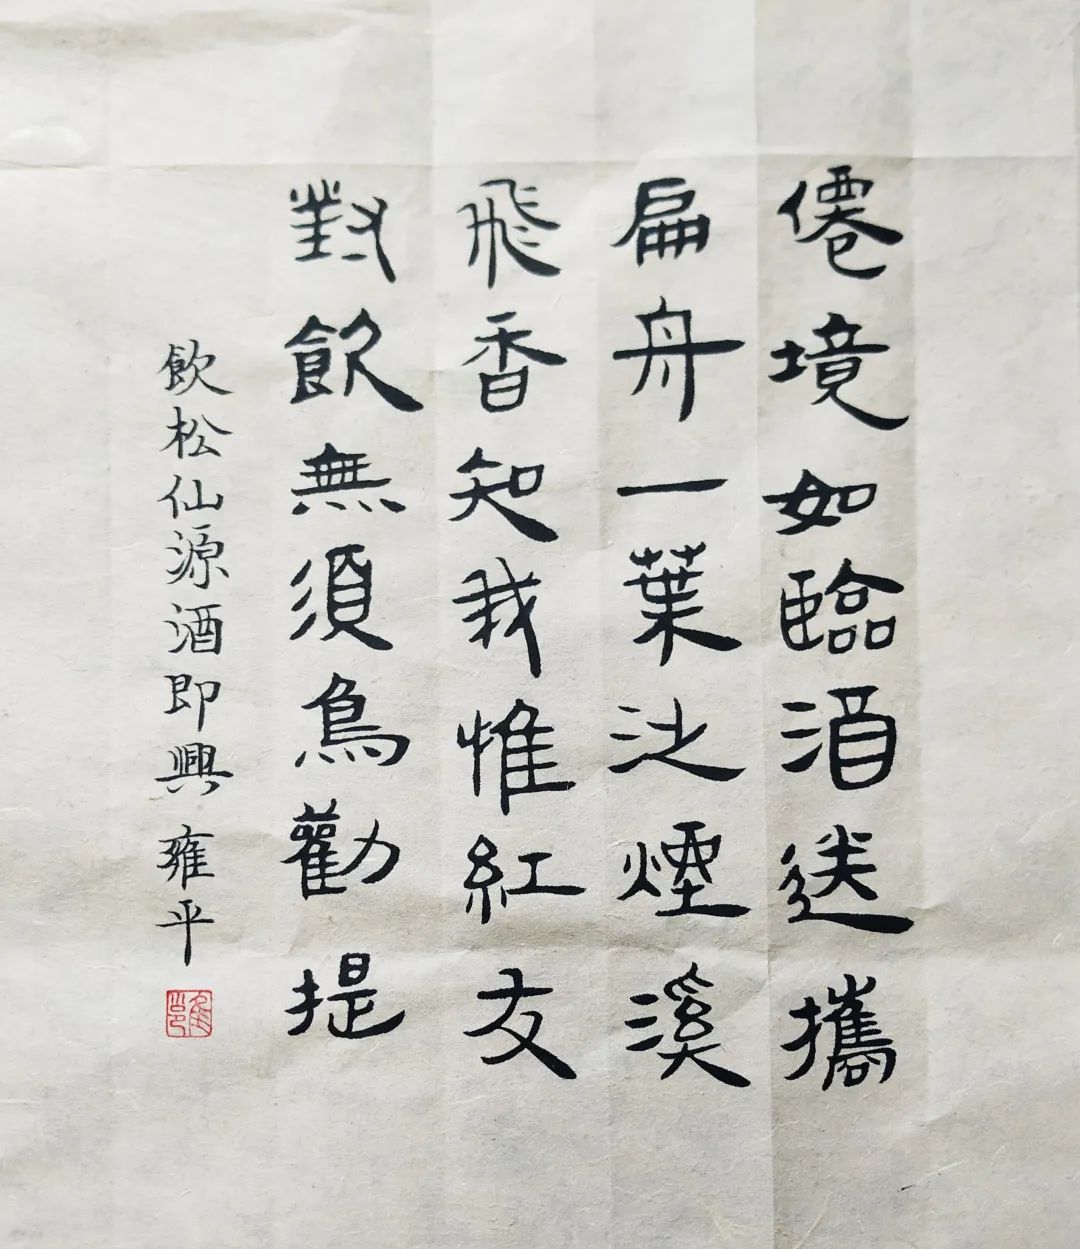 僊境如臨酒送攜
扁舟一葉泛煙溪
飛香知我惟紅友
對飲無須鳥勸提
飲松仙源酒即興 雍平